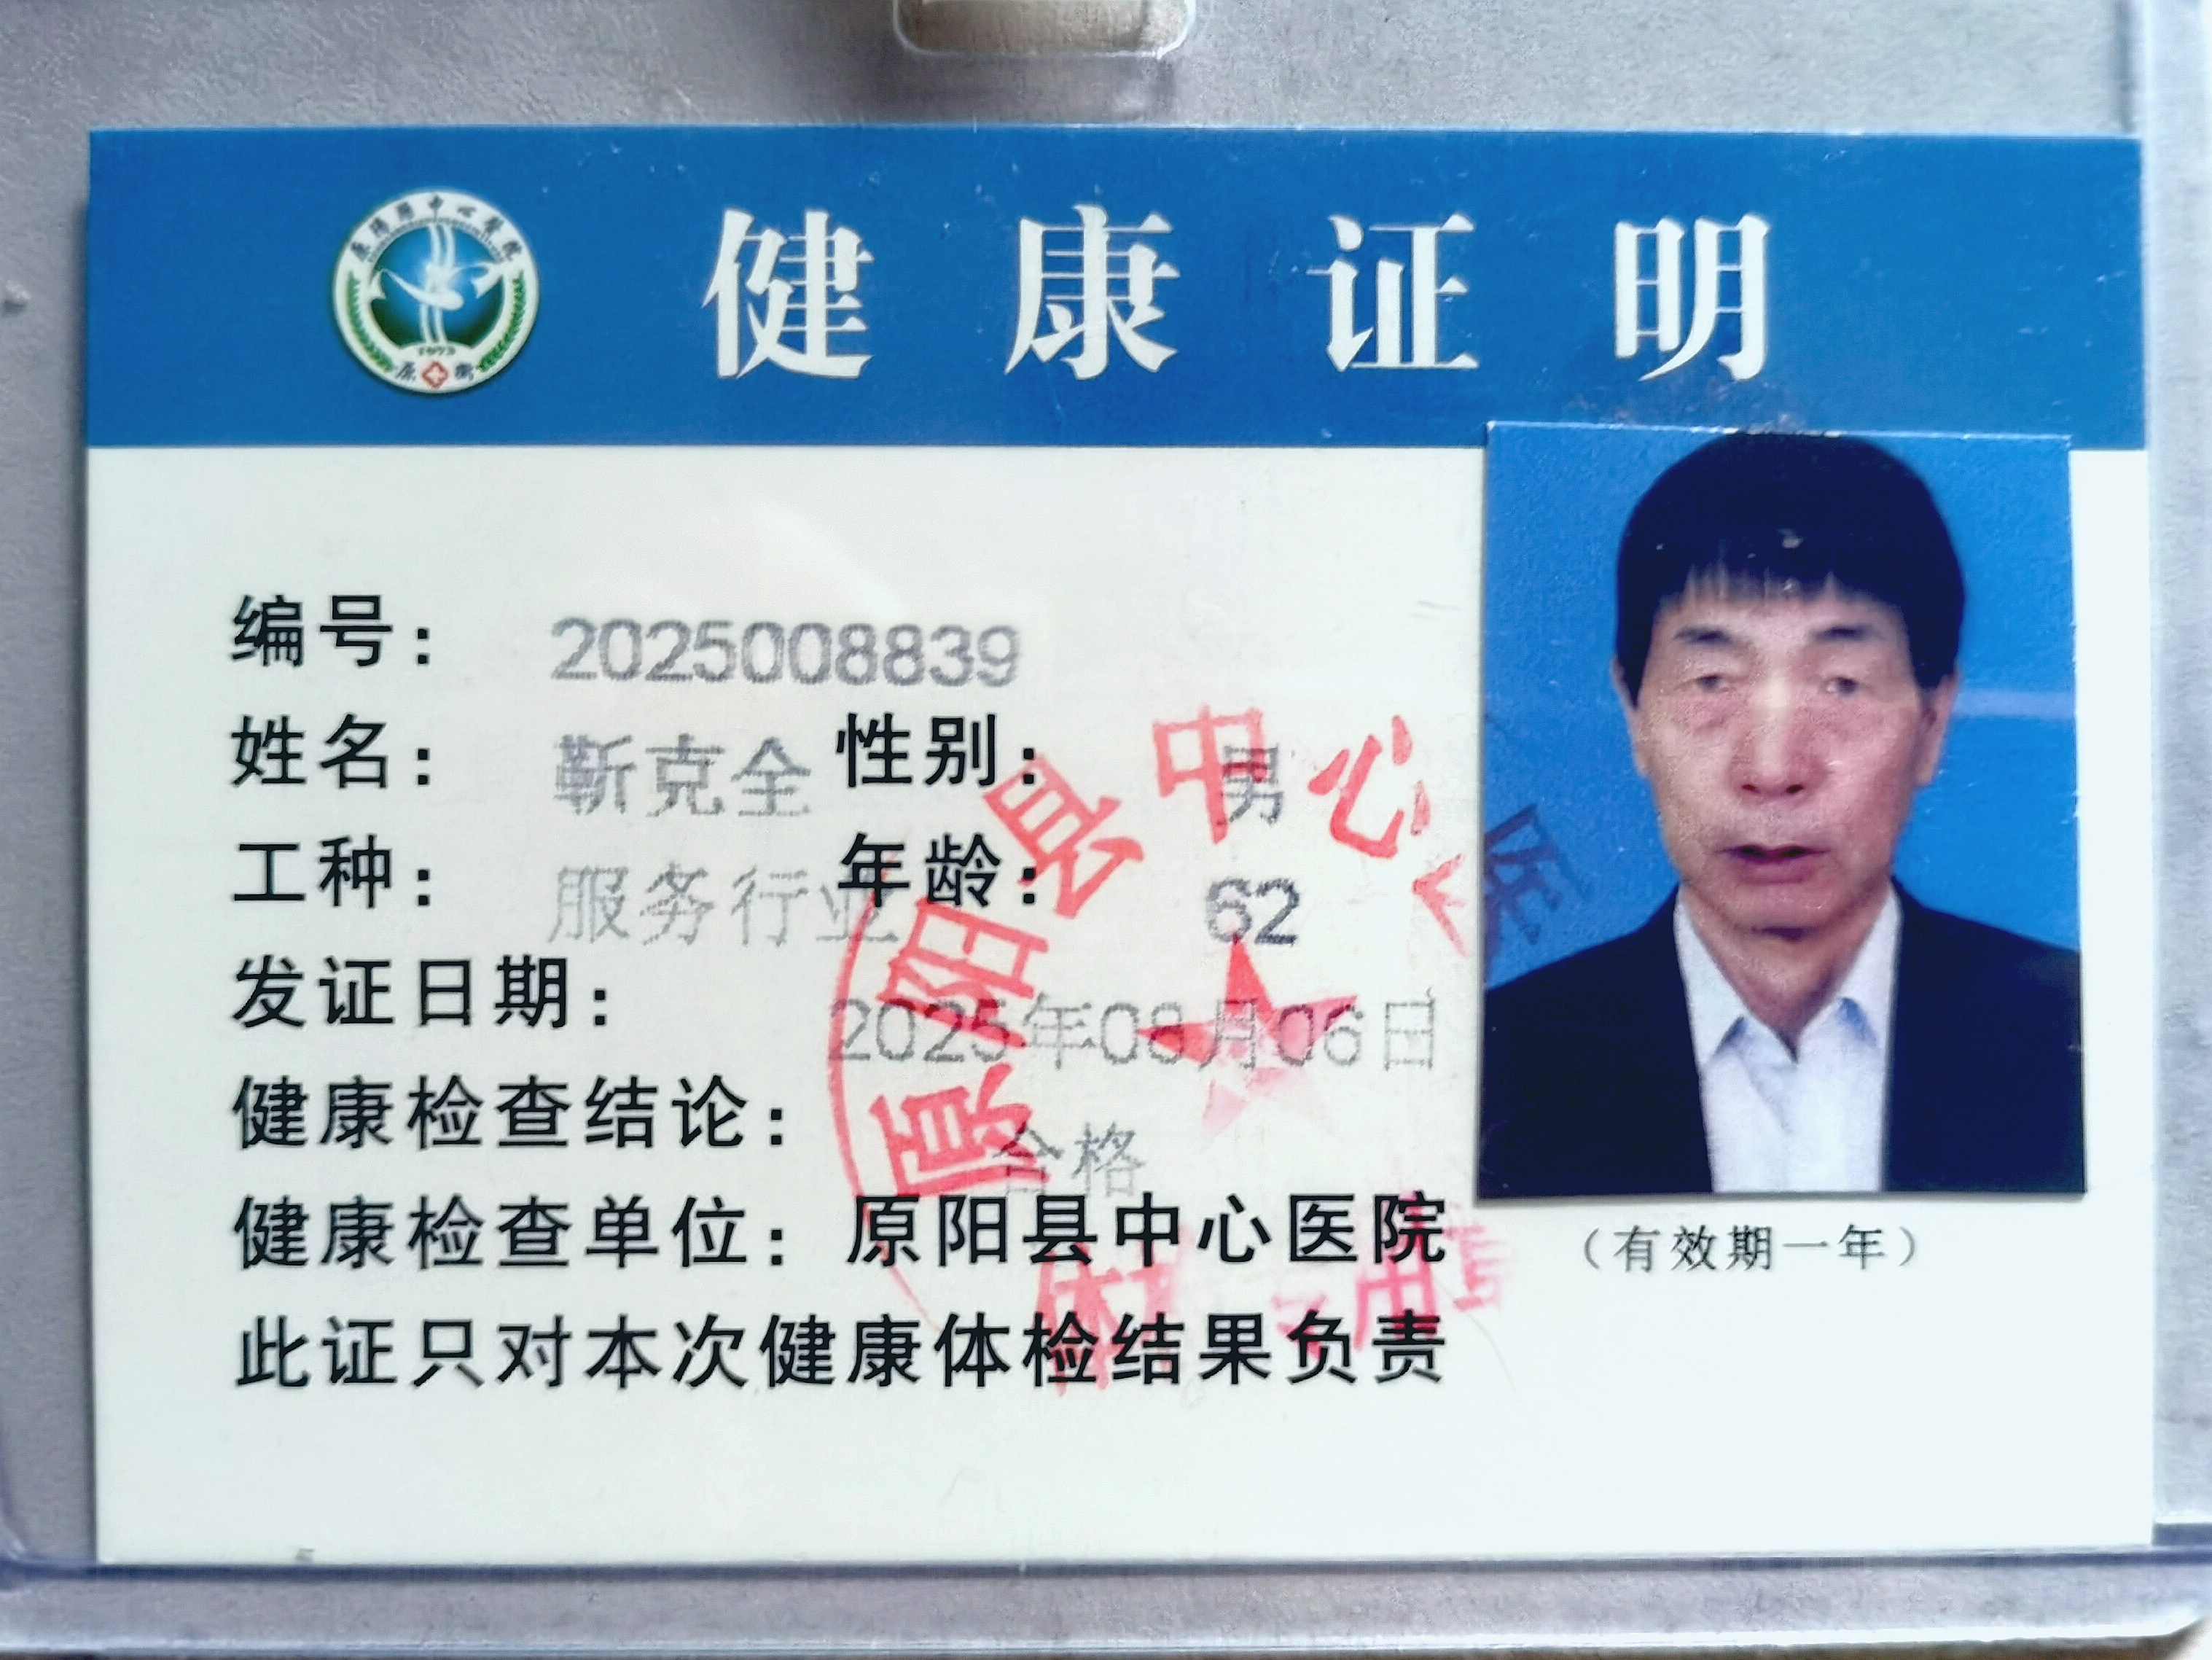 原阳县中心医院
1973
原 衛
健康证明
编号： 2025008839
姓名： 靳克全 性别： 男
工种： 服务行业 年龄： 62
发证日期： 2025年08月06日
健康检查结论： 合格
健康检查单位：原阳县中心医院
此证只对本次健康体检结果负责
（有效期一年）
原阳县中心医
用章